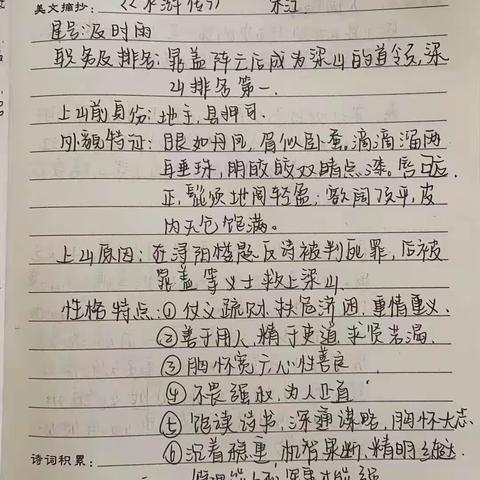 美文摘抄: 《水浒传》 宋江
星号:及时雨
职务及排名:晁盖阵亡后成为梁山的首领,梁
山排名第一.
上山前身份:地主,县押司.
外貌特征:眼如丹凤,眉似卧蚕。滴滴溜两
耳垂珠,明皎皎双睛点漆。唇口
正,髭须地阁轻盈;额阔顶平,皮
肉天仓饱满。
上山原因:在浔阳楼题反诗被判死罪,后被
晁盖等义士救上梁山.
性格特点:①仗义疏财.扶危济困.重情重义.
②善于用人,精于吏道.求贤若渴.
③胸怀宽广,心性善良
④不畏强敌,为人正直
⑤饱读诗书,深通谋略,胸怀大志
诗词积累: ⑥沉着稳重,机智果断,精明练达.